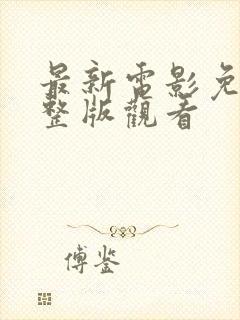 最新電影免
整版觀看
傅鉴